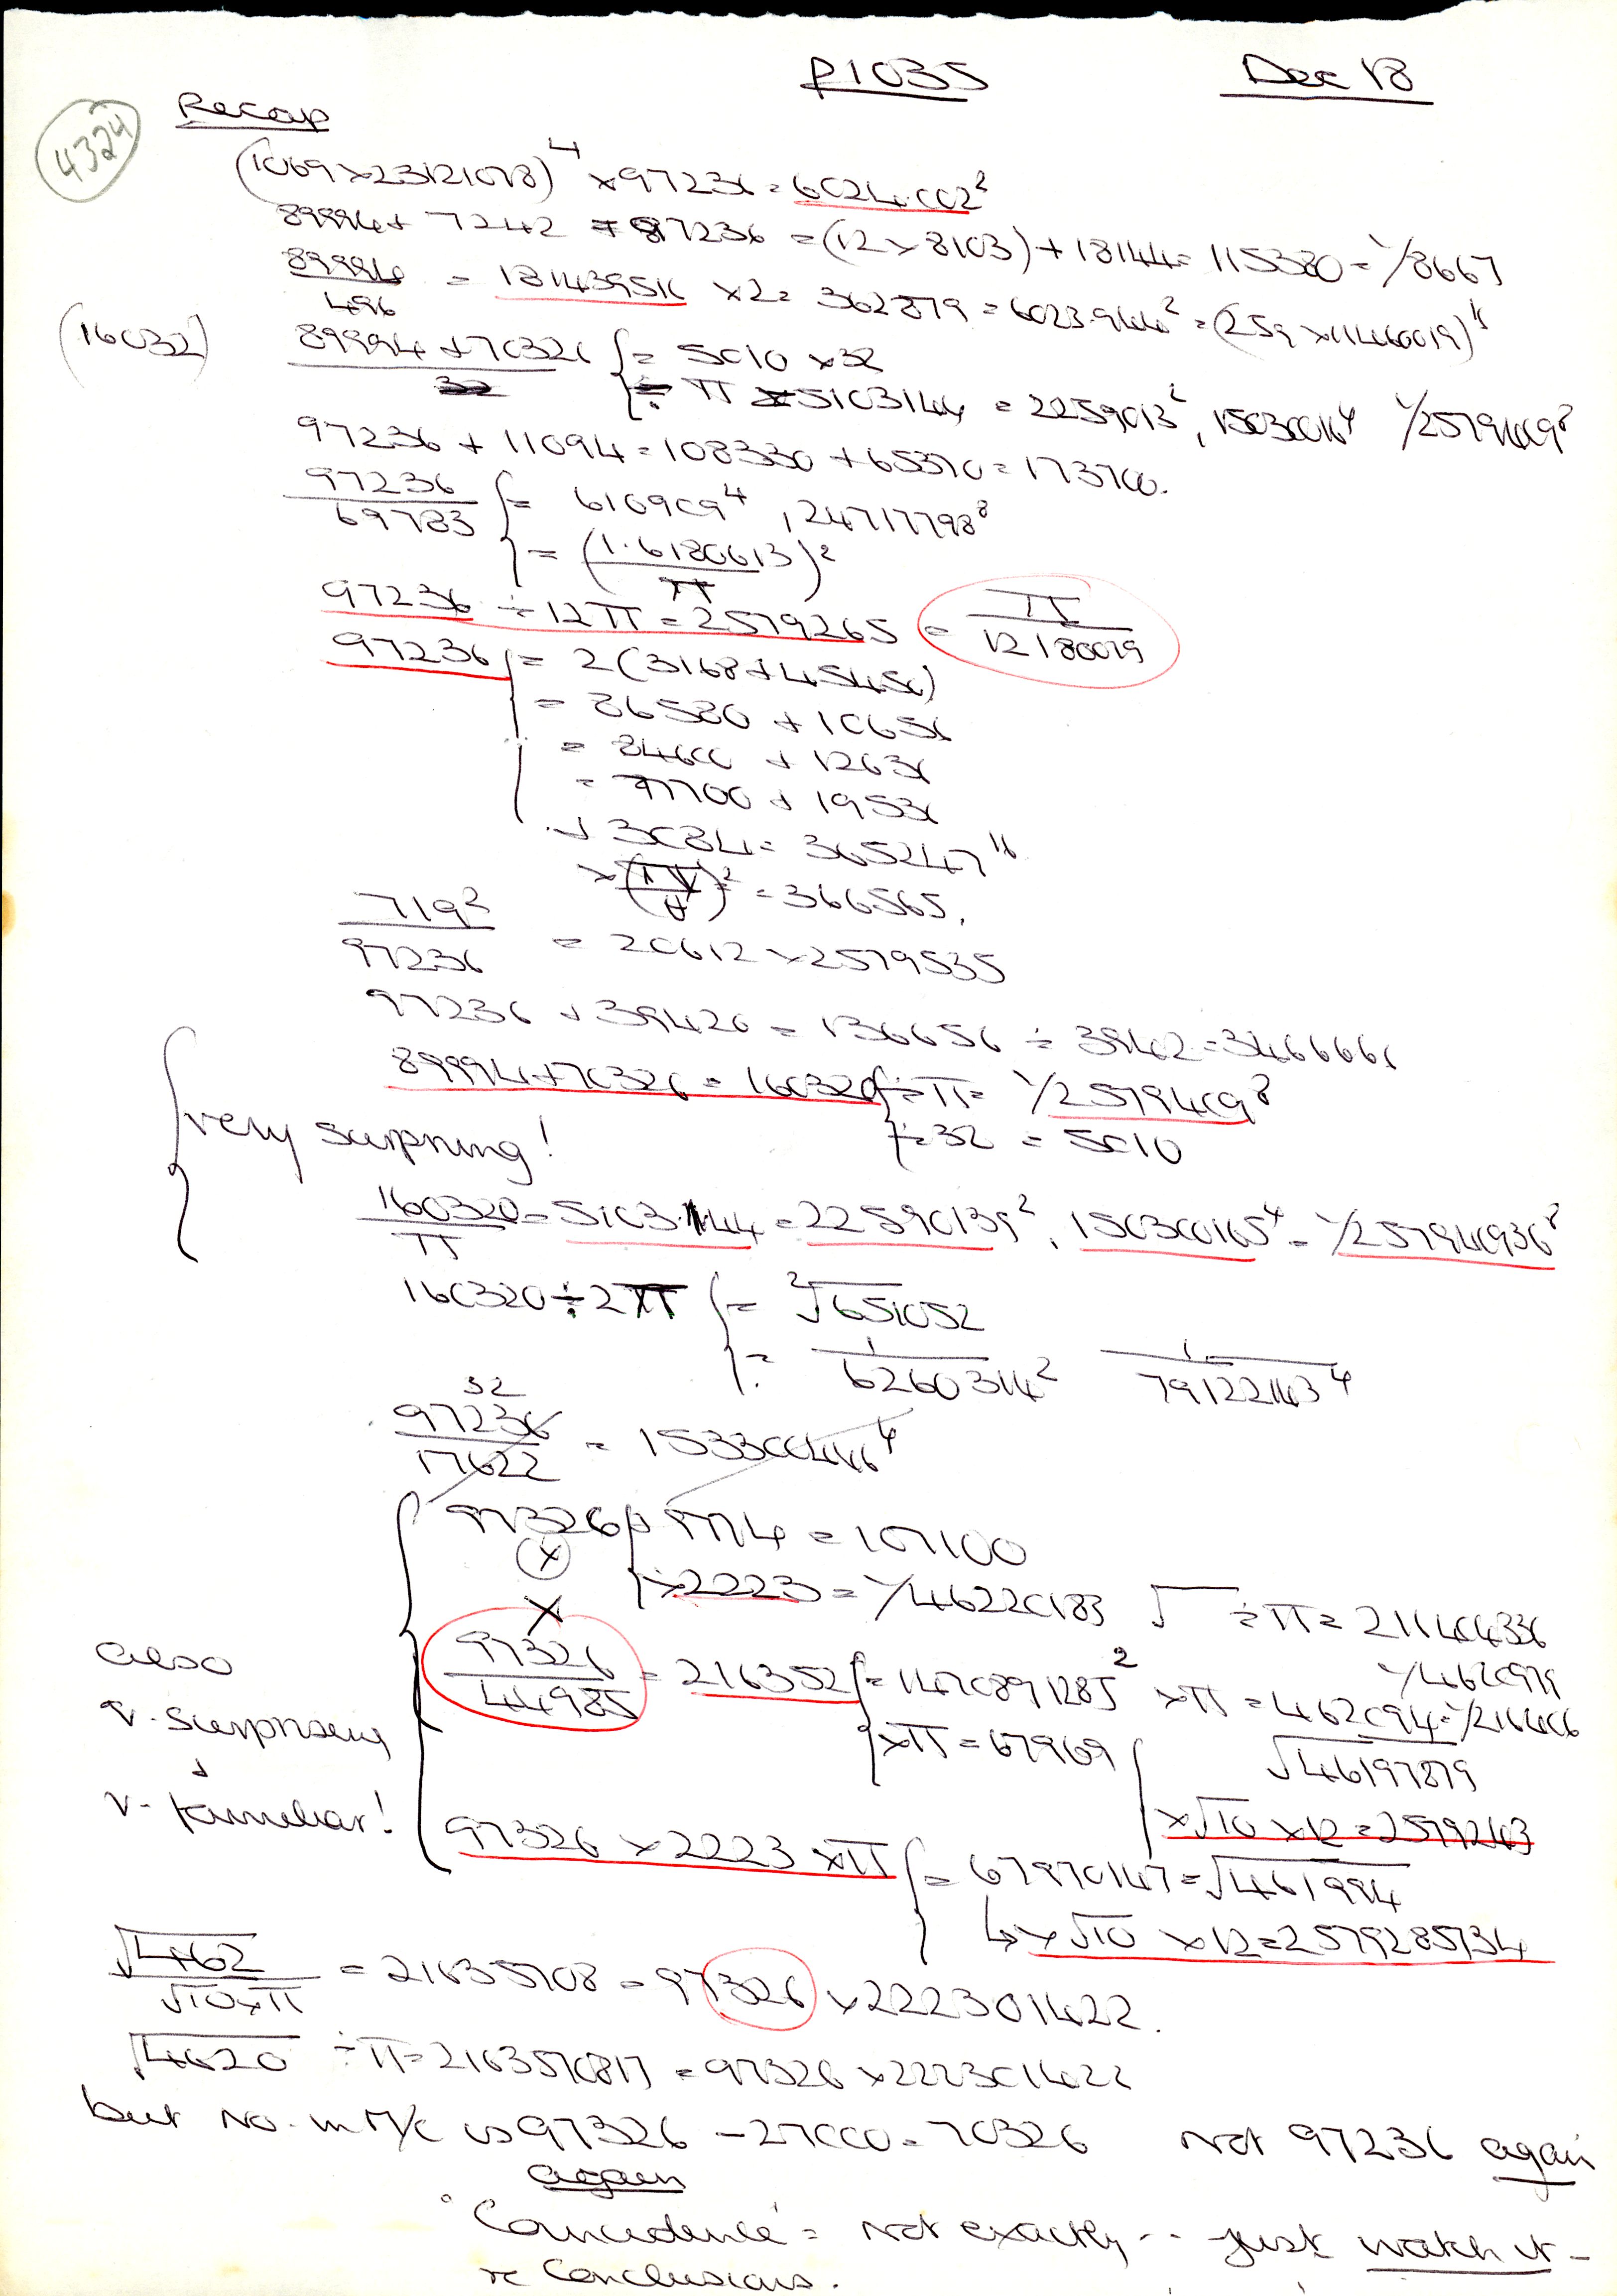 P1035 Dec 18
4324
Recap
(1069 × 23121078)⁴ × 97236 = 6024.002²
89994 + 7242 = 97236 = (12 × 8103) + 18144 = 115380 = 1/8667
89994/496 = 181439516 × 2 = 362879 = 6023.944² = (259 × 11460019)⁴
(16032) 89994 + 70326 { = 5010 × 32
÷ π = 5103144 = 2259013², 15030016⁴ 1/2579409⁸
97236 + 11094 = 108330 + 65370 = 173700.
97236/69783 { = 610909⁴, 24717798⁸
= (1.6180613/π)²
97236 ÷ 12π = 2579265 = π/12180079
97236 { = 2(3168 + 45450)
= 86580 + 10656
= 84600 + 12636
= 77700 + 19536
+ 3084 = 365247¹⁶
= 366565.
719²/97236 = 20612 × 2579535
97236 + 39420 = 136656 ÷ 3942 = 3466666
89994 + 70326 = 160320 { ÷ π = 1/2579409⁸
÷ 32 = 5010
very surprising!
160320/π = 5103.144 = 22590139², 150300165⁴ = 1/257940936⁸
160320 ÷ 2π { = ²√651052
= 1/6260314² 1/79122143⁴
32
97236/17622 = 153300446⁴
97326 { + 9774 = 107100
× 2223 = 1/46220183 √ ÷ π = 211404336
×
×
1/4620979
97326/44985 = 216352 { = 1470891285² × π = 462094 = 1/216406
× π = 67969 { √46197879
× √10 × 12 = 2579243
also
v. surprising
+
v. familiar!
97326 × 2223 × π { = 67970147 = √461994
↳ × √10 × 12 = 2579285734
√462/√10 × π = 21635708 = 97326 × 222301422.
√4620 ÷ π = 2163570817 = 97326 × 222301422
but No. in M/C is 97326 - 27000 = 70326 not 97236 again
again
"Coincidence" = Not exactly .. just watch it -
re Conclusions.